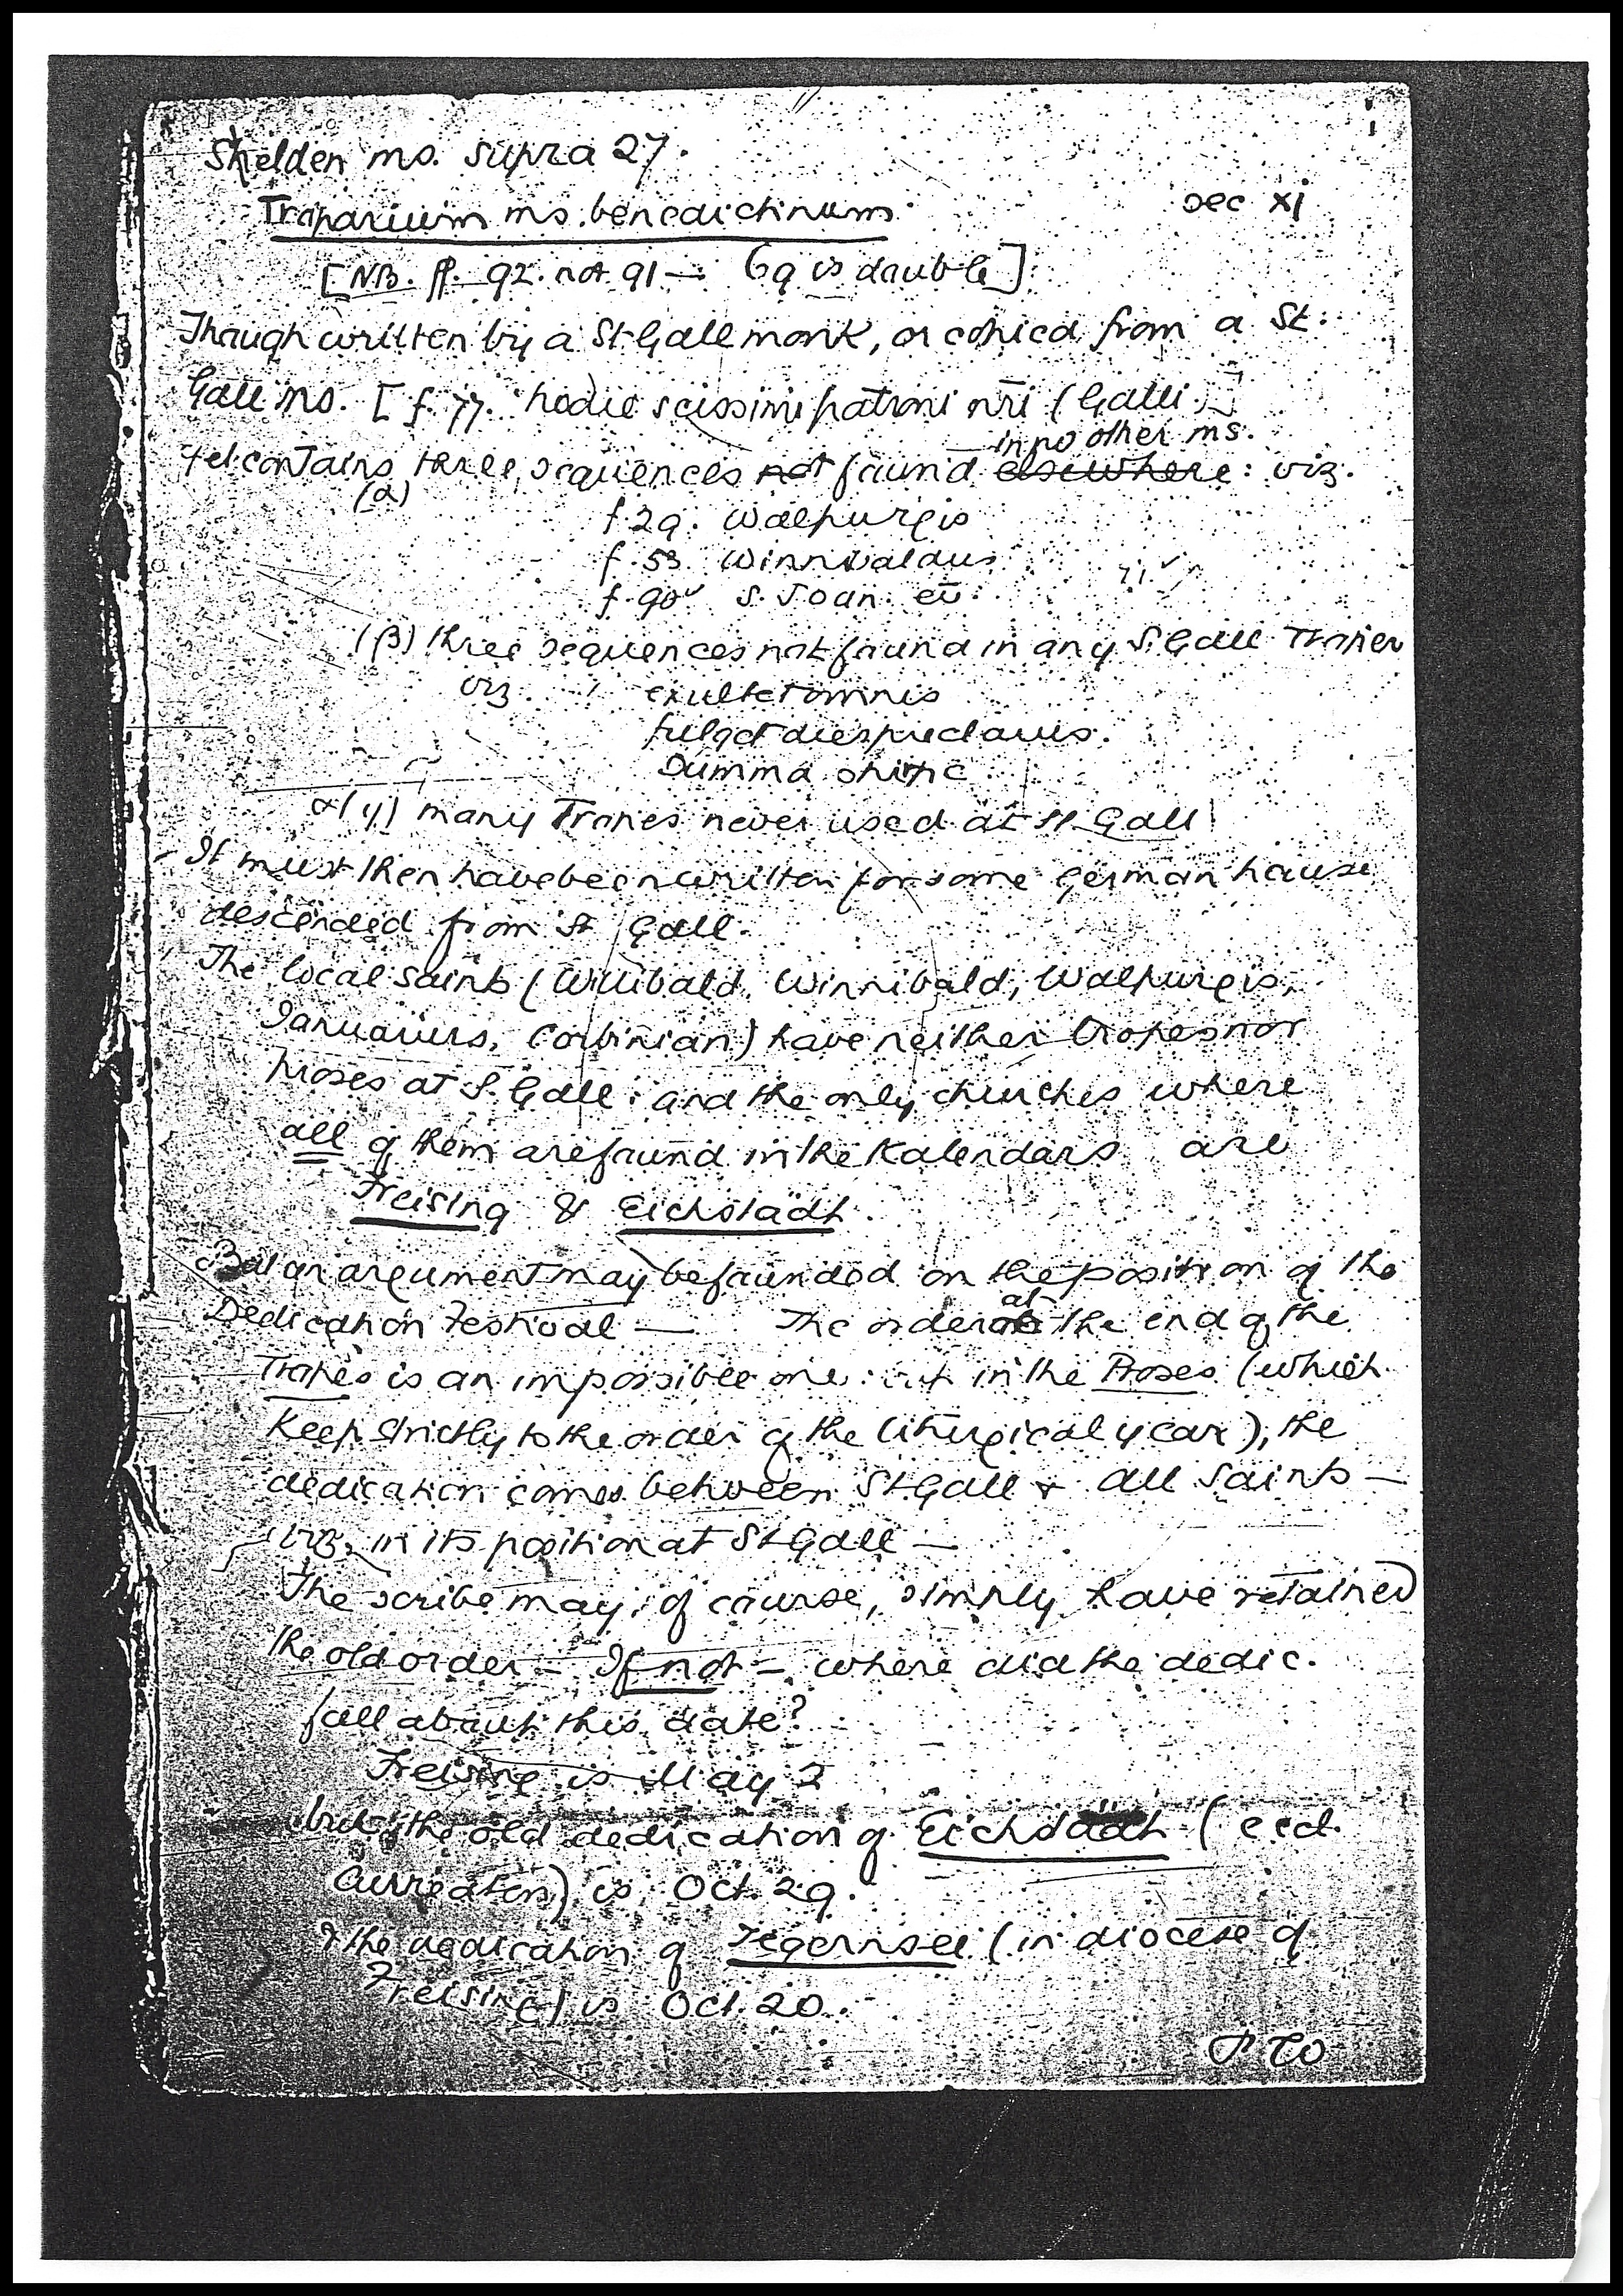 Shelden ms. supra 27.
Troparium ms. benedictinum sec xj
[NB. ff. 92. not 91 — 69 is double]
Though written by a St Gall monk, or copied from a St.
Gall ms. [f. 77. hodie scissimi patroni nr̄i (Galli.)]
yet contains three sequences not found in no other ms. elsewhere: viz.
(α)
f 29. Walpurgis
f. 53. Winnibaldus
f. 90ᵛ S. Joan. ev̄.
(β) three sequences not found in any S. Gall Troper
viz. exultet omnis
fulget dies preclarus.
Summa
&(γ) many Tropes never used at St Gall
It must then have been written for some German house
descended from St Gall.
The local saints (Willibald, Winnibald, Walpurgis,
Januarius, Corbinian) have neither tropes nor
proses at S. Gall: and the only churches where
all of them are found in the Kalendars are
Freising & Eichstädt.
But an argument may be founded on the position of the
Dedication Festival — The order at the end of the
Tropes is an impossible one: but in the Proses (which
keep strictly to the order of the liturgical year), the
dedication comes between St Gall & All Saints —
viz. in its position at St Gall —
The scribe may, of course, simply have retained
the old order — If not — where did the dedic.
fall about this date?
Freising is May 2
but the old dedication of Eichstädt (eccl.
) is Oct. 29.
& the dedication of Tegernsee (in diocese of
Freising) is Oct. 20.
PTO